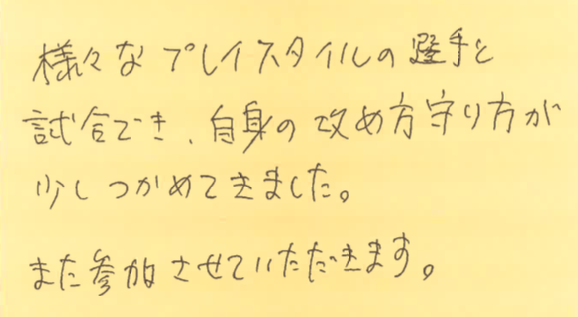 様々なプレイスタイルの選手と
試合でき、自身の攻め方守り方が
少しつかめてきました。
また参加させていただきます。